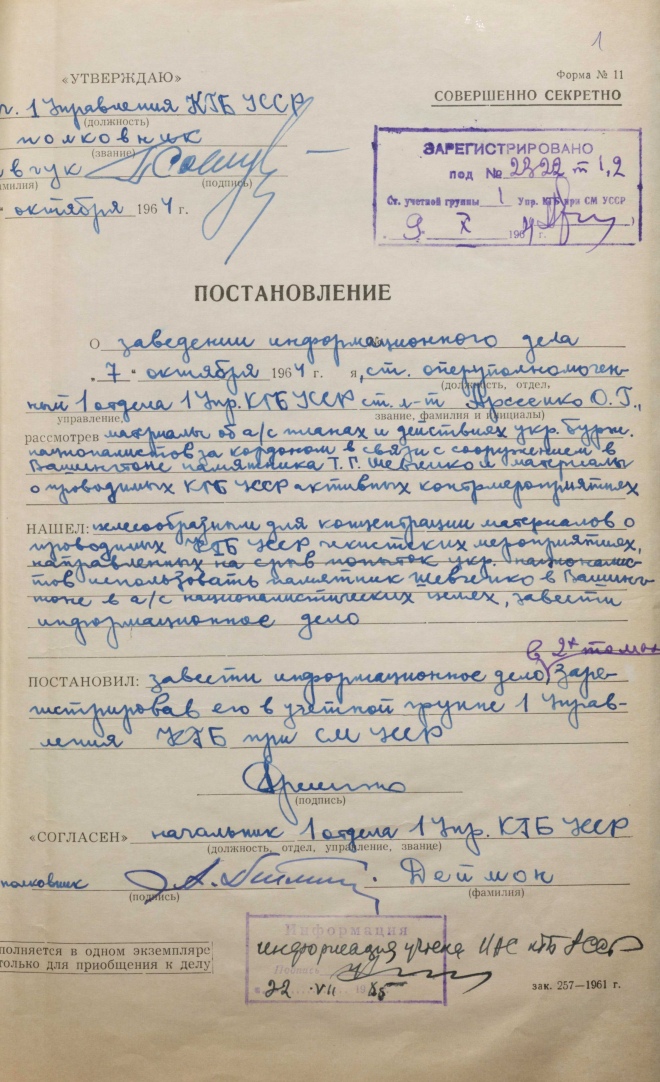 1
«УТВЕРЖДАЮ»
Форма № 11
СОВЕРШЕННО СЕКРЕТНО
ч. 1 Управления КГБ УССР
(должность)
полковник
(звание)
вчук
амилия) (подпись)
" октября 1964 г.
ЗАРЕГИСТРИРОВАНО
под № 2322 т 1,2
Ст. учетной группы 1 Упр. КГБ при СМ УССР
9. X 1964 г.
ПОСТАНОВЛЕНИЕ
О заведении информационного дела
„7" октября 1964 г. я, ст. оперуполномочен-
(должность, отдел,
ный 1 отдела 1 Упр. КГБ УССР ст. л-т О.Г.,
управление, звание, фамилия и инициалы)
рассмотрев материалы об а/с планах и действиях укр. бурж.
националистов за кордоном в связи с сооружением в
Вашингтоне памятника Т.Г. Шевченко и материалы
о проводимых КГБ УССР активных контрмероприятиях
НАШЕЛ: целесообразным для концентрации материалов о
проводимых КГБ УССР чекистских мероприятиях,
направленных на срыв попыток укр. националис-
тов использовать памятник Шевченко в Вашинг-
тоне в а/с националистических целях, завести
информационное дело
в 2х томах
ПОСТАНОВИЛ: завести информационное дело, заре-
гистрировав его в учетной группе 1 Управ-
ления КГБ при СМ УССР
(подпись)
«СОГЛАСЕН» начальник 1 отдела 1 Упр. КГБ УССР
(должность, отдел, управление, звание)
полковник Деймон
(подпись) (фамилия)
Информация
информация учтена ИАС КГБ УССР
Подпись
22 VII 1985
полняется в одном экземпляре
только для приобщения к делу
зак. 257—1961 г.